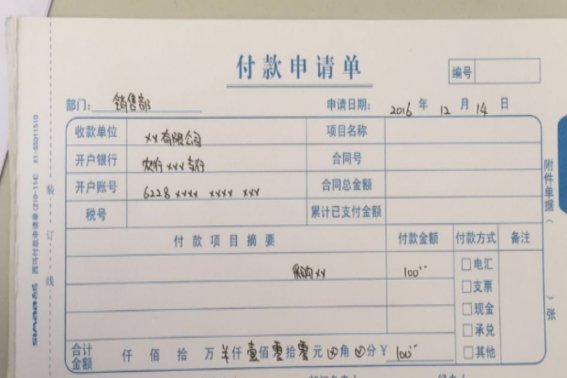 付款申请单
编号
部门: 销售部 申请日期: 2016 年 12 月 14 日
收款单位 xx有限公司 项目名称
开户银行 农行xxx支行 合同号
开户账号 6228 xxxx xxxx xxx 合同总金额
税号 累计已支付金额
付款项目摘要 付款金额 付款方式 备注
采购xx 100
□电汇
□支票
□现金
□承兑
□其他
合计金额 仟 佰 拾 万 仟壹佰零拾零元 角 分 ¥ 100
附件单据( )张
装订线